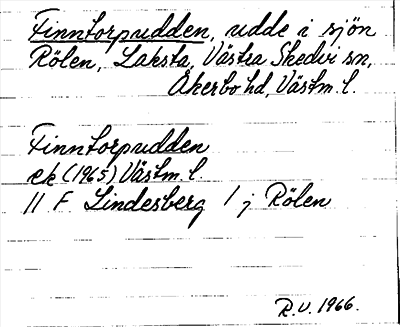 Finntorpudden, udde i sjön
Rölen, Laksta, Västra Skedvi sn,
Åkerbo hd, Västm. l.
Finntorpudden
ek (1965) Västm. l.
11 F Lindesberg 1 j Rölen
R.V. 1966.